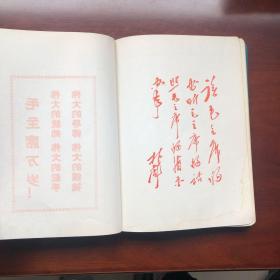 读毛主席的
书听毛主席的话
照毛主席的指示
办事
林彪
伟大的导师 伟大的领袖
伟大的统帅 伟大的舵手
毛主席万岁!